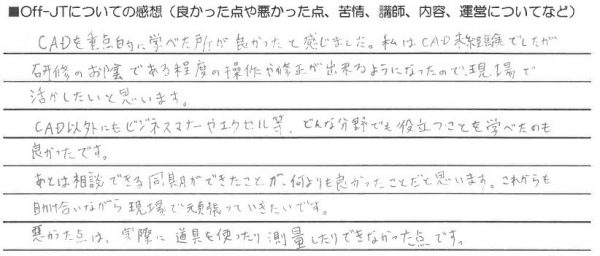 ■Off-JTについての感想（良かった点や悪かった点、苦情、講師、内容、運営についてなど）
CADを重点的に学べた所が良かったと感じました。私はCAD未経験でしたが
研修のお陰である程度の操作や修正が出来るようになったので、現場で
活かしたいと思います。
CAD以外にもビジネスマナーやエクセル等、どんな分野でも役立つことを学べたのも
良かったです。
あとは相談できる同期ができたことが、何よりも良かったことだと思います。これからも
助け合いながら現場で頑張っていきたいです。
悪かった点は、実際に道具を使ったり測量したりできなかった点です。